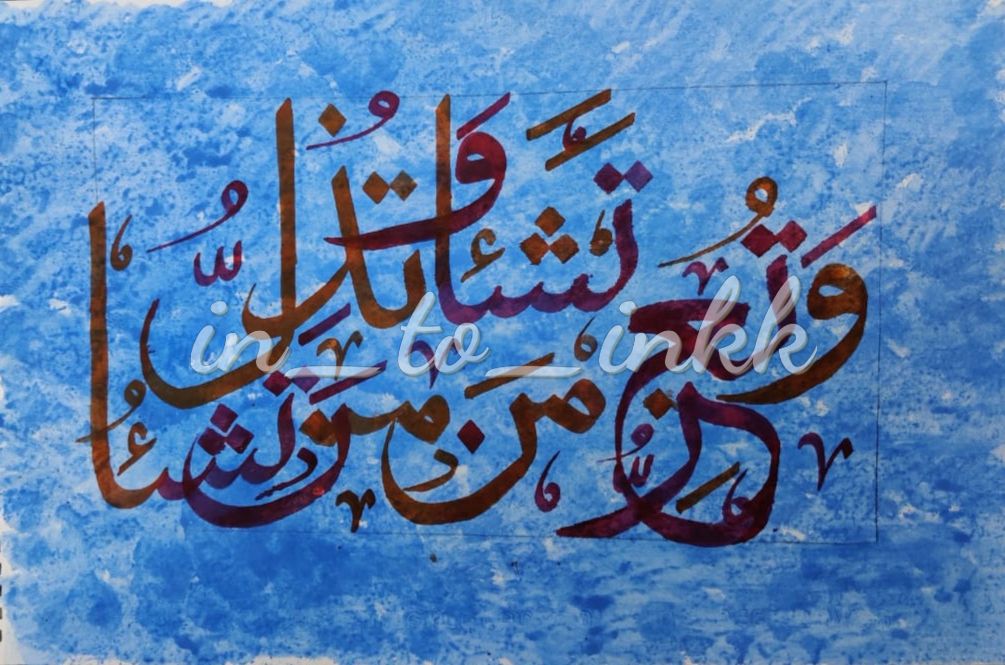 وَتُعِزُّ مَن تَشَاءُ وَتُذِلُّ مَن تَشَاءُ
in_to_inkk